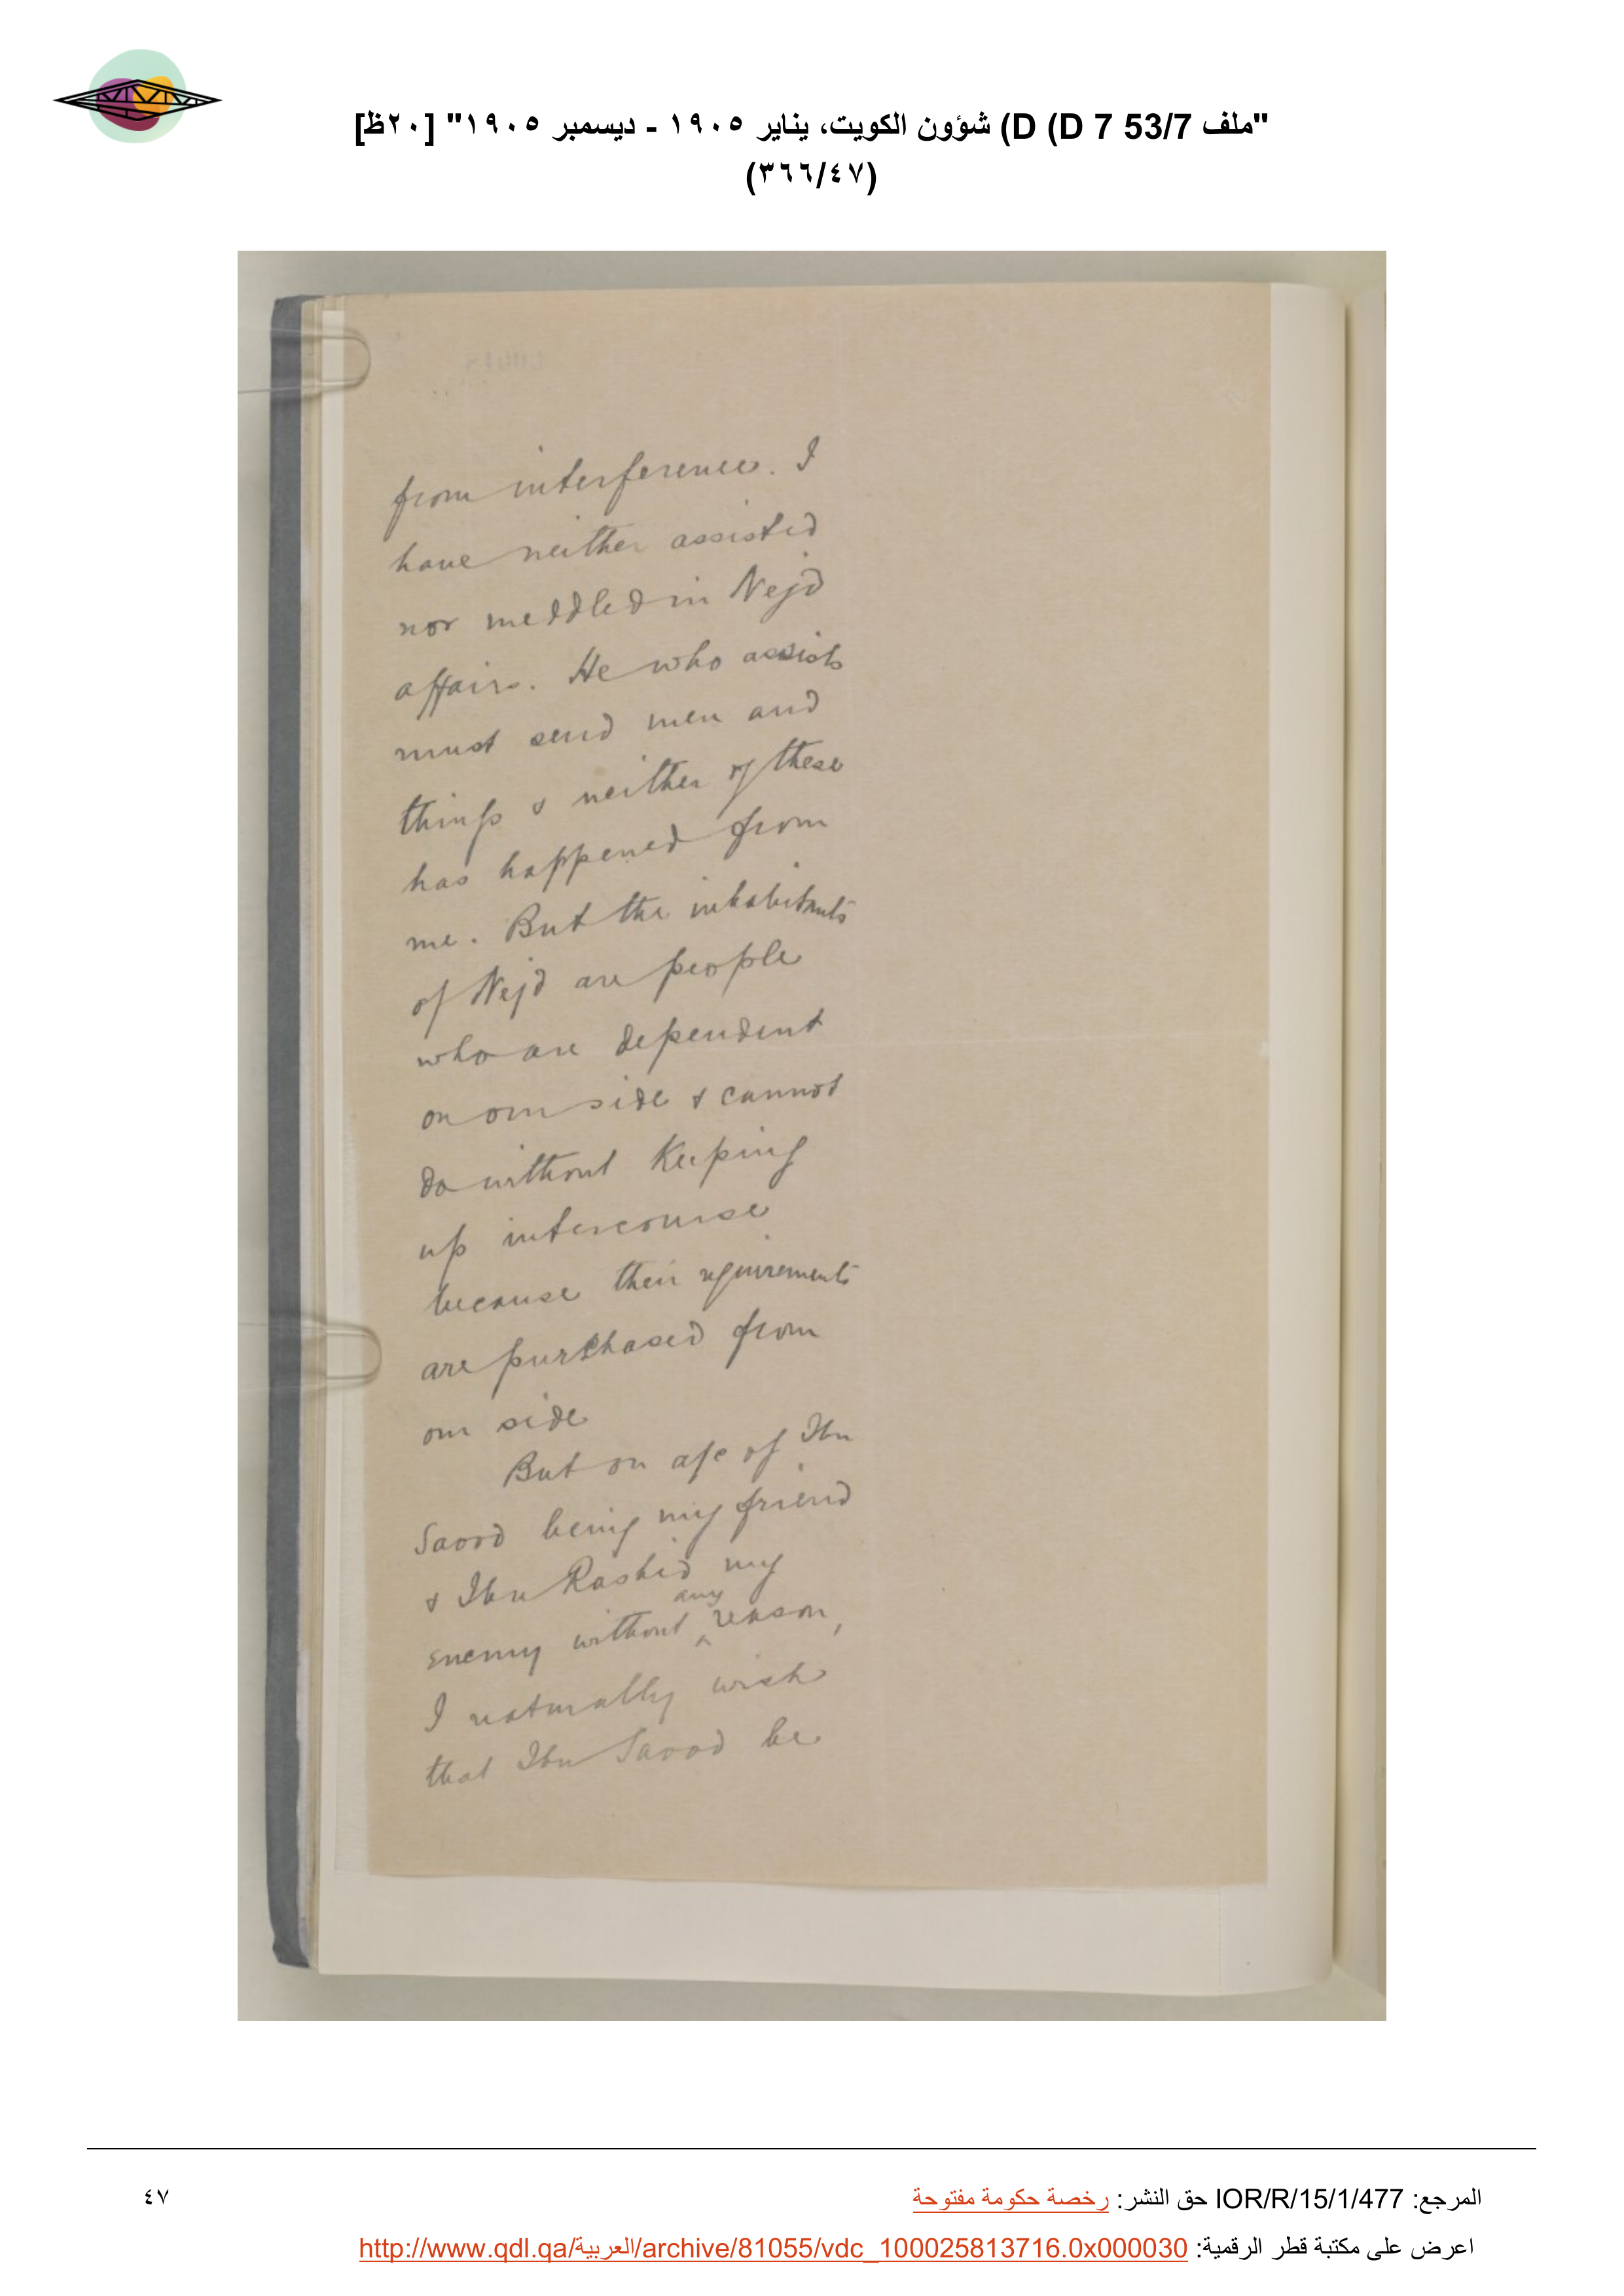 "ملف 53/7 D 7 D) D) شؤون الكويت، يناير ١٩٠٥ - ديسمبر ١٩٠٥" [٢٠ظ]
(٣٦٦/٤٧)
from interference. I
have neither assisted
nor meddled in Nejd
affairs. He who assists
must send men and
things & neither of these
has happened from
me. But the inhabitants
of Nejd are people
who are dependent
on our side & cannot
do without keeping
up intercourse
because their requirements
are purchased from
our side
But on a/c of Ibn
Saood being my friend
& Ibn Rashid my
enemy without any reason,
I naturally wish
that Ibn Saood be
المرجع: IOR/R/15/1/477 حق النشر: رخصة حكومة مفتوحة
٤٧
اعرض على مكتبة قطر الرقمية: http://www.qdl.qa/العربية/archive/81055/vdc_100025813716.0x000030